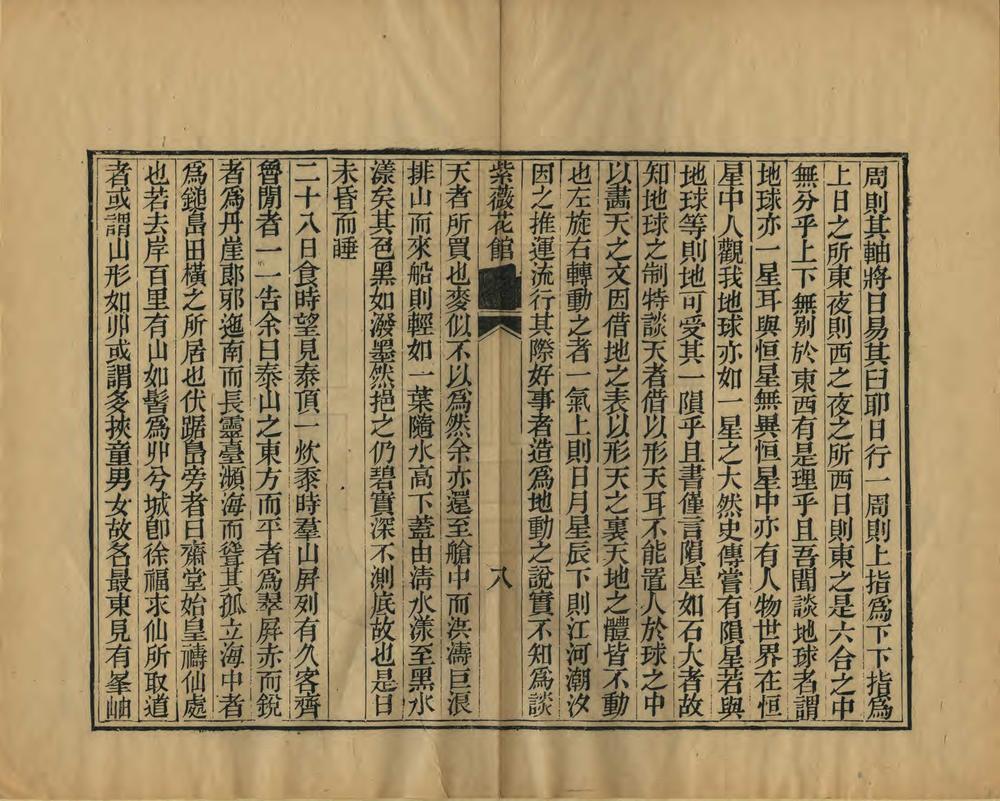 周則其軸將日易其臼耶日行一周則上指爲下下指爲
上日之所東夜則西之夜之所西日則東之是六合之中
無分乎上下無别於東西有是理乎且吾聞談地球者謂
地球亦一星耳與恒星無異恒星中亦有人物世界在恒
星中人觀我地球亦如一星之大然史傳嘗有隕星若與
地球等則地可受其一隕乎且書僅言隕星如石大者故
知地球之制特談天者借以形天耳不能置人於球之中
以畵天之文因借地之表以形天之裏天地之體皆不動
也左旋右轉動之者一氣上則日月星辰下則江河潮汐
因之推運流行其際好事者造爲地動之說實不知爲談
紫薇花館
八
天者所買也麥似不以爲然余亦還至艙中而洪濤巨浪
排山而來船則輕如一葉隨水高下蓋由淸水漾至黑水
漾矣其色黑如潑墨然挹之仍碧實深不測底故也是日
未昏而睡
二十八日食時望見泰頂一炊黍時羣山屏列有久客齊
魯閒者一一告余曰泰山之東方而平者爲翠屏赤而銳
者爲丹崖郞邪迤南而長靈臺瀕海而聳其孤立海中者
爲鎚島田橫之所居也伏踞島旁者曰齋堂始皇禱仙處
也若去岸百里有山如髻爲丱兮城卽徐福求仙所取道
者或謂山形如丱或謂多挾童男女故名最東見有峯岫